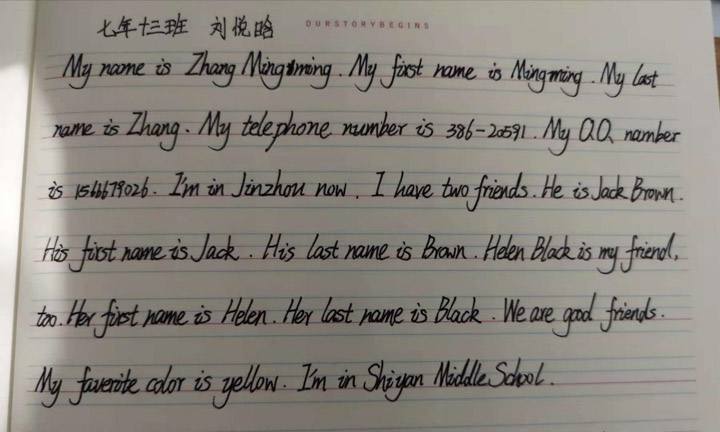 七年十三班 刘悦晗 OURSTORYBEGINS
My name is Zhang Mingming. My first name is Mingming. My last
name is Zhang. My telephone number is 386-20591. My QQ number
is 1566679026. I'm in Jinzhou now. I have two friends. He is Jack Brown.
His first name is Jack. His last name is Brown. Helen Black is my friend,
too. Her first name is Helen. Her last name is Black. We are good friends.
My faverite color is yellow. I'm in Shiyan Middle School.